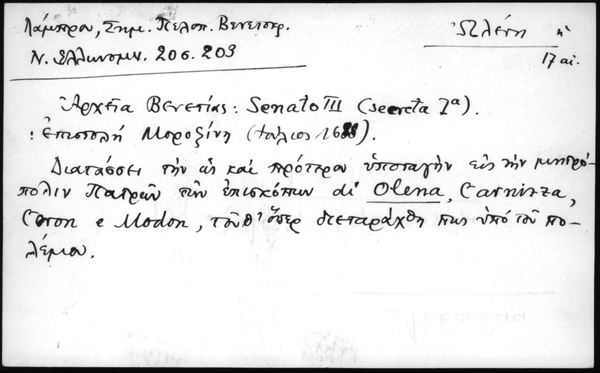 Λάμπρου, Σημ. Πελοπ. Βενετοκρ.
Ὠλένη ἡ
Ν. Ἑλληνομν. 20 σ. 203
17 αἰ.
Ἀρχεῖα Βενετίας: Senato III (secreta 7ª).
: Ἐπιστολή Μοροζίνη (Ἰούλιος 1688).
Διατάσσει τὴν ὡς καὶ πρότερον ὑποταγὴν εἰς τὴν μητρό-
πολιν Πατρῶν τῶν ἐπισκόπων di Olena, Carnizza,
Coron e Modon, τοῦθ' ὅπερ διεταράχθη πως ὑπὸ τοῦ πο-
λέμου.